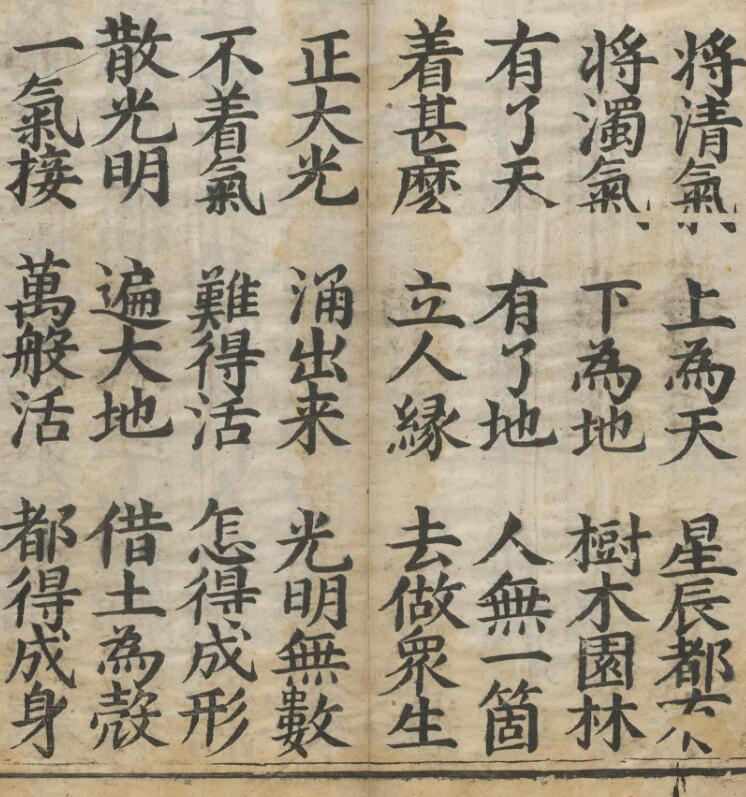 将清氣 上為天 星辰都
将濁氣 下為地 樹木園林
有了天 有了地 人無一箇
着甚麼 立人緣 去做衆生
正大光 涌出来 光明無數
不着氣 難得活 怎得成形
散光明 遍大地 借土為殼
一氣接 萬般活 都得成身